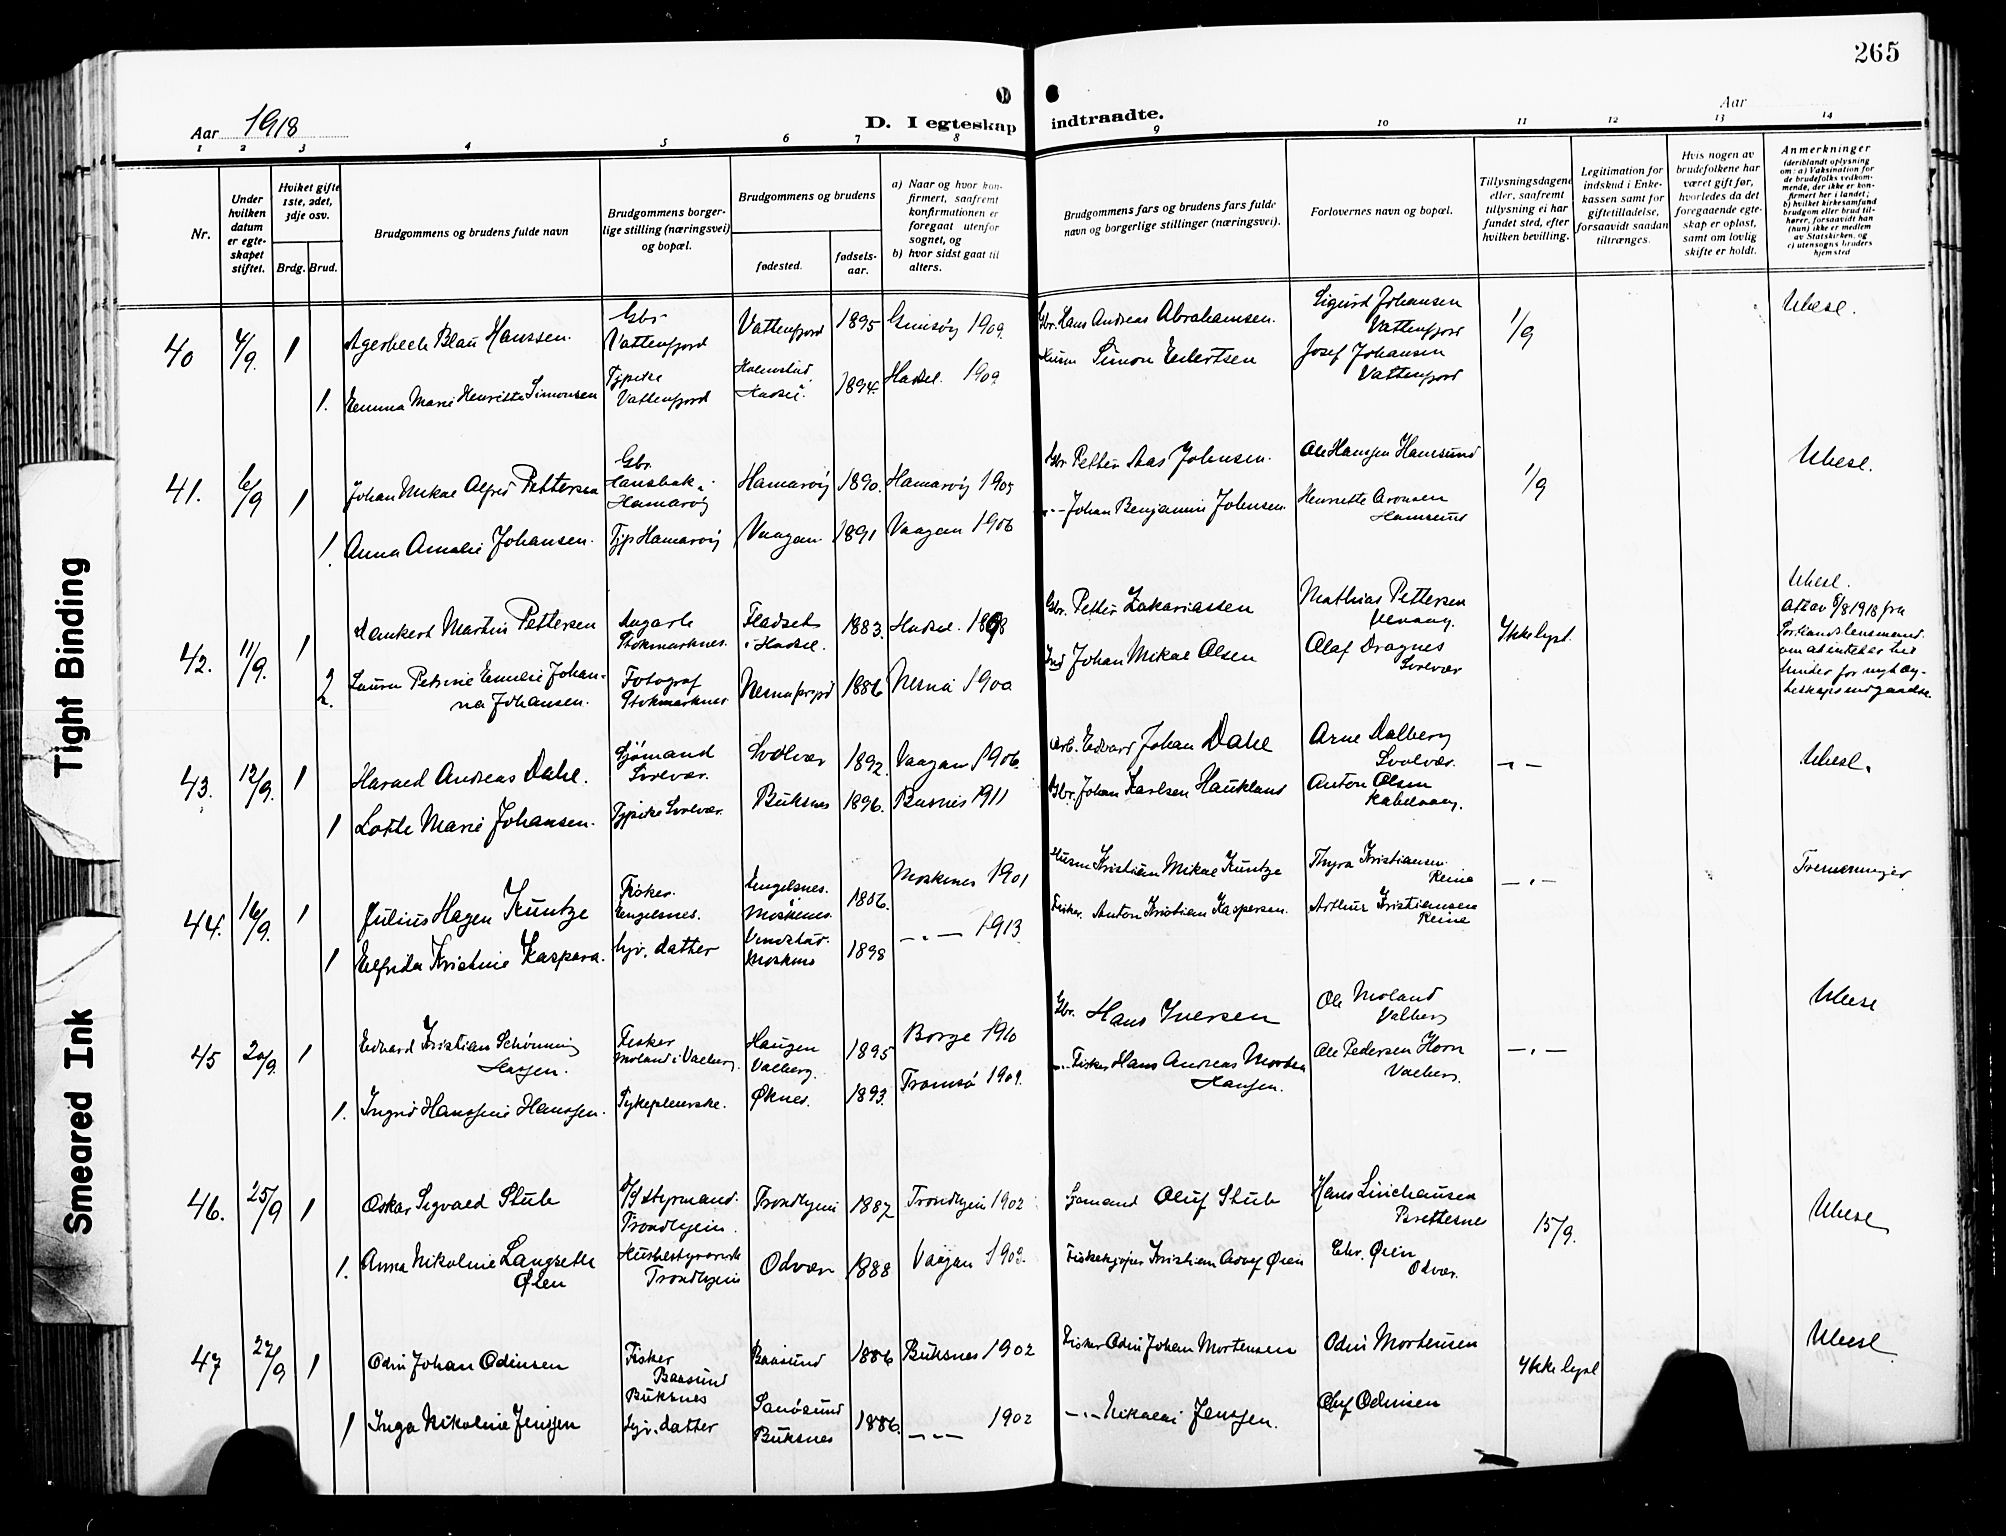 265
Aar 1918
D. I egteskap indtraadte.
Aar
1 2 3 4 5 6 7 8 9 10 11 12 13 14
Nr.
Under hvilken datum er egteskapet stiftet.
Hvilket gifte 1ste, 2det, 3dje osv.
Brdg. Brud.
Brudgommens og brudens fulde navn
Brudgommens borgerlige stilling (næringsvei) og bopæl.
Brudgommens og brudens
fødested.
fødselsaar.
a) Naar og hvor konfirmert, saafremt konfirmationen er foregaat utenfor sognet, og
b) hvor sidst gaat til alters.
Brudgommens fars og brudens fars fulde navn og borgerlige stillinger (næringsvei).
Forlovernes navn og bopæl.
Tillysningsdagene eller, saafremt tillysning ei har fundet sted, efter hvilken bevilling.
Legitimation for indskud i Enkekassen samt for giftetilladelse, forsaavidt saadan tiltrænges.
Hvis nogen av brudefolkene har været gift før, hvorledes da det foregaaende egteskap er opløst, samt om lovlig skifte er holdt.
Anmerkninger
(deriblandt oplysning om: a) Vaksination for de brudefolks vedkommende, der ikke er konfirmert her i landet; b) hvilket kirkesamfund brudgom eller brud tilhører, forsaavidt han (hun) ikke er medlem av Statskirken, og c) utensogns bruders hjemsted
40 4/9. 1 Agerbech Blau Hanssen. Gbr Vattenfjord Vattenfjord 1895 Gimsøy 1909. Gbr. Hans Andreas Abrahamsen. Sigurd Johansen Vattenfjord 1/9 Ubesl.
1. Emma Marie Henriette Simonsen Tjpike Vattenfjord Holmstad Hadsel. 1894. Hadsel. 1909 Simon Edvertsen Josef Johansen Vattenfjord
41. 6/9 1 Johan Mikal Alfred Pettersen Gbr. Hansbak. Hamarøy Hamarøy 1890. Hamarøy 1905 Gbr Petter Aas Johnsen. Ole Hansen Hamsund 1/9 Ubesl.
1. Anna Amalie Johansen. Tjp Hamarøy Vaagan 1891 Vaagan 1906 -"- Johan Benjamin Johnsen. Henriette Aronsen Hamsund
42. 11/9. 1 Martin Pettersen Stokmarknes. i Hadsel. 1883. Hadsel. 1898 Gbr. Petter Zakariassen Mathias Pettersen Ikke lyst. Ubesl.
Att av 8/8 1918 fra
2. Laura Petrine Emelie Johanna Johansen. Fotograf Stokmarknes. 1886 Nesna 1900 Johan Mikal Olsen Olaf Dragnes Svolvær
43. 12/9. 1 Harald Andreas Dahl. Sjømand Svolvær. Svolvær 1892. Vaagan 1906. Arb. Edvard Johan Dahl Arne Dalberg Svolvær. -"- Ubesl.
1 Lotte Marie Johansen. Tjpike Svolvær. Buksnes 1896. 1911 Gbr. Johan Karlsen Haukland Anton Olsen Kabelvaag.
44. 16/9. 1 Julius Hagen Kuntze Fisker. Engelsnes. Engelsnes. Moskenes. 1886. Moskenes 1901 Husm Kristian Mikal Kuntze Thyra Kristiansen Reine -"- Tremenninger
1 Elfrida Kristine Kaspara. hjv. datter Vindstad. Moskenes 1898 -"- 1913. Fisker. Anton Kristian Kaspersen. Arthur Kristiansen Reine
45 20/9. 1 Edvard Kristian Schønning Hagen. Fisker Moland i Valberg. Haugen Valberg. 1895 Borge 1910 Gbr. Hans Iversen Ole Moland Valberg -"- Ubesl
1. Ingrid Hanssine Hanssen. Sykepleierske. Øknes. 1893. Tromsø 1909. -"- Fisker Hans Andreas Hansen. Ole Pedersen Horn Valberg.
46. 25/9 1 Oskar Sigvald Stub D/S styrmand. Trondhjem. Trondhjem 1887 Trondhjem 1902 Sjømand Oluf Stub Hans Linchausen Brettesnes 15/9. Ubesl
1. Anna Nikoline Langseth Øien Husbestyrerinde Trondhjem Odvær 1888 Vaagan 1903. Fiskekjøper Kristian Adolf Øien Chr. Øien Odvær.
47 27/9 1 Odin Johan Odinsen Fisker Baasund Buksnes Baasund 1886 Buksnes 1902 Fisker Odin Johan Mortensen Odin Mortensen Ikke lyst Ubesl.
1 Inga Nikoline Jenssen hjv. datter Buksnes 1886. -"- 1902 -"- Nikolai Jenssen. Oluf Odinsen
Tight Binding
Smeared Ink